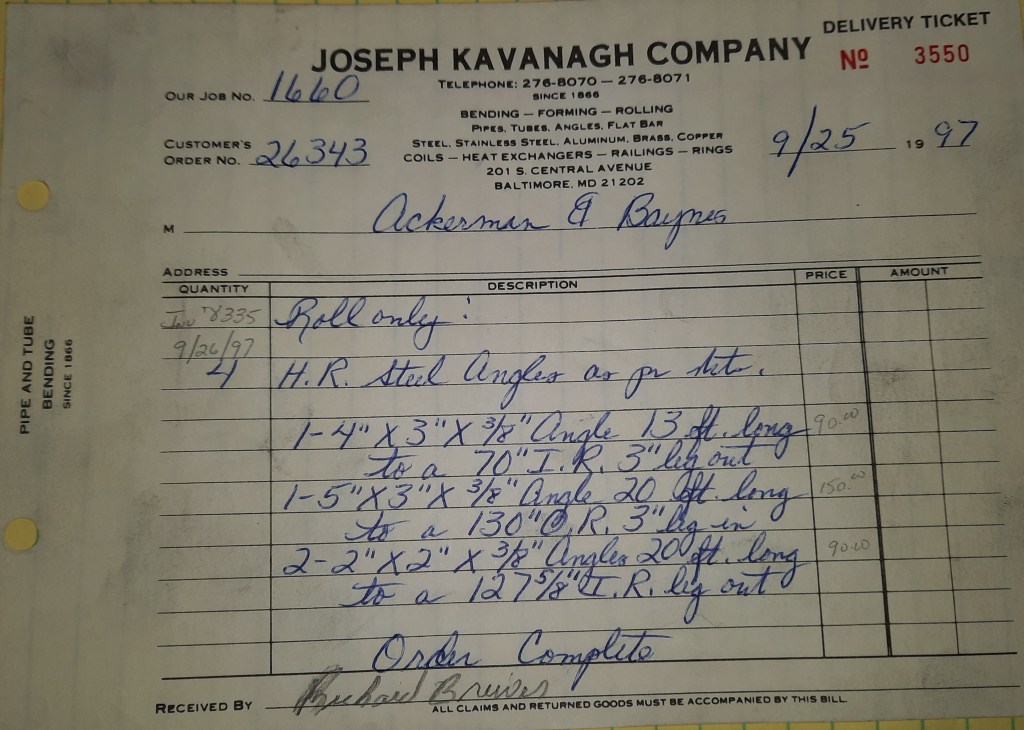 DELIVERY TICKET
JOSEPH KAVANAGH COMPANY
Nº 3550
TELEPHONE: 276-8070 — 276-8071
SINCE 1866
OUR JOB NO. 1660
BENDING — FORMING — ROLLING
PIPES, TUBES, ANGLES, FLAT BAR
STEEL, STAINLESS STEEL, ALUMINUM, BRASS, COPPER
COILS — HEAT EXCHANGERS — RAILINGS — RINGS
201 S. CENTRAL AVENUE
BALTIMORE, MD 21202
CUSTOMER'S
ORDER NO. 26343
9/25 19 97
M Ackerman & Baynes
ADDRESS
QUANTITY DESCRIPTION PRICE AMOUNT
Inv 8335 Roll only:
9/26/97
4 H.R. Steel Angles as pr
1-4" X 3" X 3/8" Angle 13 ft. long 90.00
to a 70" I.R. 3" leg out
1-5" X 3" X 3/8" Angle 20 ft. long 150.00
to a 130" O.R. 3" leg in
2-2" X 2" X 3/8" Angles 20 ft. long 90.00
to a 127 5/8" I.R. leg out
Order Complete
RECEIVED BY Richard
ALL CLAIMS AND RETURNED GOODS MUST BE ACCOMPANIED BY THIS BILL.
PIPE AND TUBE
BENDING
SINCE 1866